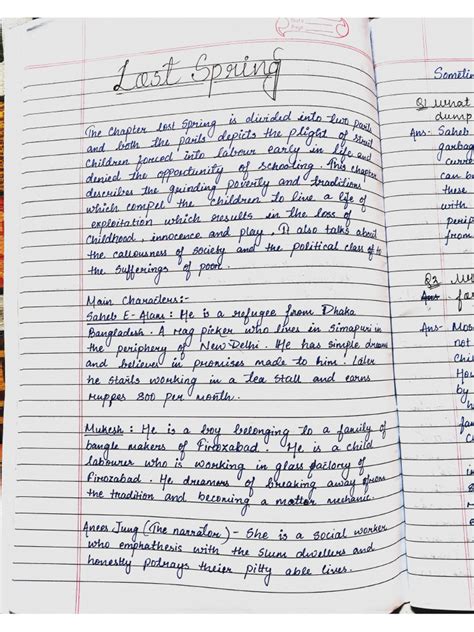 Lost Spring
The Chapter lost Spring is divided into two parts
and both the parts depicts the plight of street
Children forced into labour early in life and
denied the opportunity of schooling. This chapter
describes the grinding poverty and traditions
which compel the children to live a life of
exploitation which results in the loss of
childhood, innocence and play. It also talks about
the callousness of society and the political class to
the sufferings of poor.
Main Characters:-
Saheb E-Alam: He is a refugee from Dhaka
Bangladesh. A rag picker who lives in Simapuri in
the periphery of New Delhi. He has simple dreams
and believer in promises made to him. later
he starts working in a tea stall and earns
ruppes 800 per month.
Mukesh: He is a boy belonging to a family of
bangle makers of Firozabad. He is a child
labourer who is working in glass factory of
Firozabad. He dreamers of breaking away from
the tradition and becoming a motter mechanic.
Anees Jung (The narrator) - She is a social worker
who emphathesis with the slum dwellers and
honestly potrays theier pitty able lives.
Sometim
Q1 what
dump
Ans- Saheb
garbag
curre
can b
these
with
perip
from
Q2
Ans
fo
Ans- Mos
not
Chi
How
by
fam